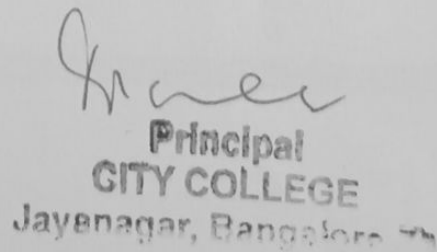 Principal
CITY COLLEGE
Jayanagar, Bangalore